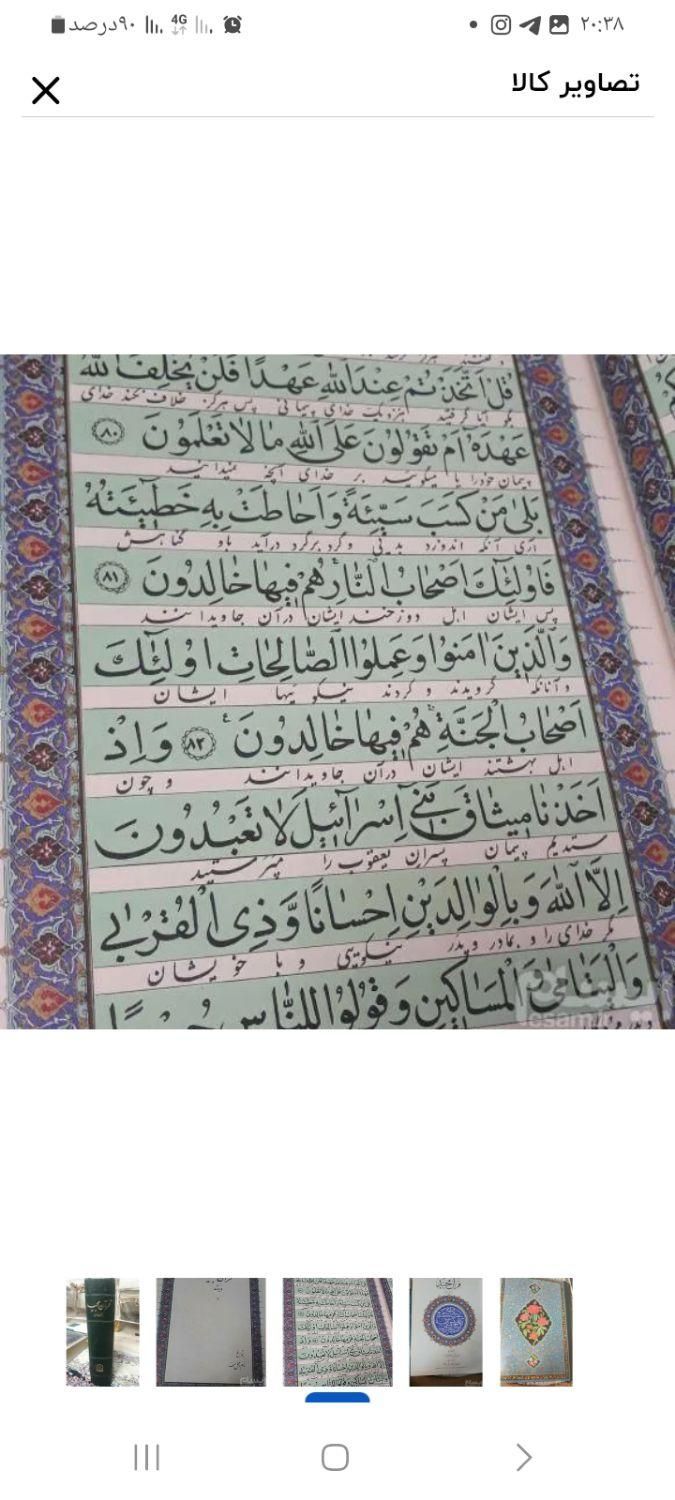 ۲۰:۳۸
4G
۹۰درصد
تصاویر کالا
قُلْ اَتَّخَذْتُمْ عِنْدَ اللّٰهِ عَهْدًا فَلَنْ يُخْلِفَ اللّٰهُ
بگو آیا گرفتید از نزدیک خدای پیمانی پس هرگز خلاف نکند خدای
عَهْدَهُ اَمْ تَقُولُونَ عَلَى اللّٰهِ مَا لَا تَعْلَمُونَ ۸۰
پیمان خود را یا میگوئید بر خدای آنچه نمیدانید
بَلٰى مَنْ كَسَبَ سَيِّئَةً وَاَحَاطَتْ بِهِ خَطٖيۤئَتُهُ
آری آنکه اندوزد بدیی و گرد برگرد درآید باو گناهش
فَاُولٰۤئِكَ اَصْحَابُ النَّارِ هُمْ فٖيهَا خَالِدُونَ ۸۱
پس ایشان اهل دوزخند ایشان درآن جاویدانند
وَالَّذٖينَ اٰمَنُوا وَعَمِلُوا الصَّالِحَاتِ اُولٰۤئِكَ
و آنانکه گرویدند و کردند نیکوییها ایشان
اَصْحَابُ الْجَنَّةِ هُمْ فٖيهَا خَالِدُونَ ۸۲ وَاِذْ
اهل بهشتند ایشان درآن جاویدانند و چون
اَخَذْنَا مٖيثَاقَ بَنٖيۤ اِسْرَاۤئٖلَ لَا تَعْبُدُونَ
ستدیم پیمان پسران یعقوب را نپرستید
اِلَّا اللّٰهَ وَبِالْوَالِدَيْنِ اِحْسَانًا وَذِى الْقُرْبٰى
مگر خدای را و بمادر و پدر نیکویی و با خویشان
وَالْيَتَامٰى وَالْمَسَاكٖينِ وَقُولُوا لِلنَّاسِ حُسْنًا
esam.ir